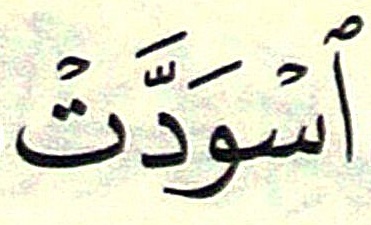 ٱسۡوَدَّتۡ